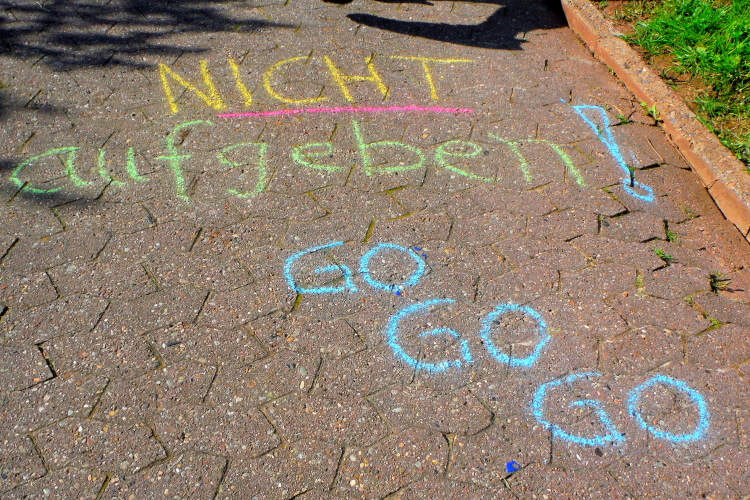 NICHT
aufgeben!
GO
GO
GO